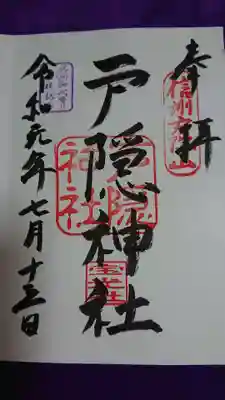 奉拝
信州戸隠山
戸隠神社
戸隠神社
宝光社
令和元年七月十三日